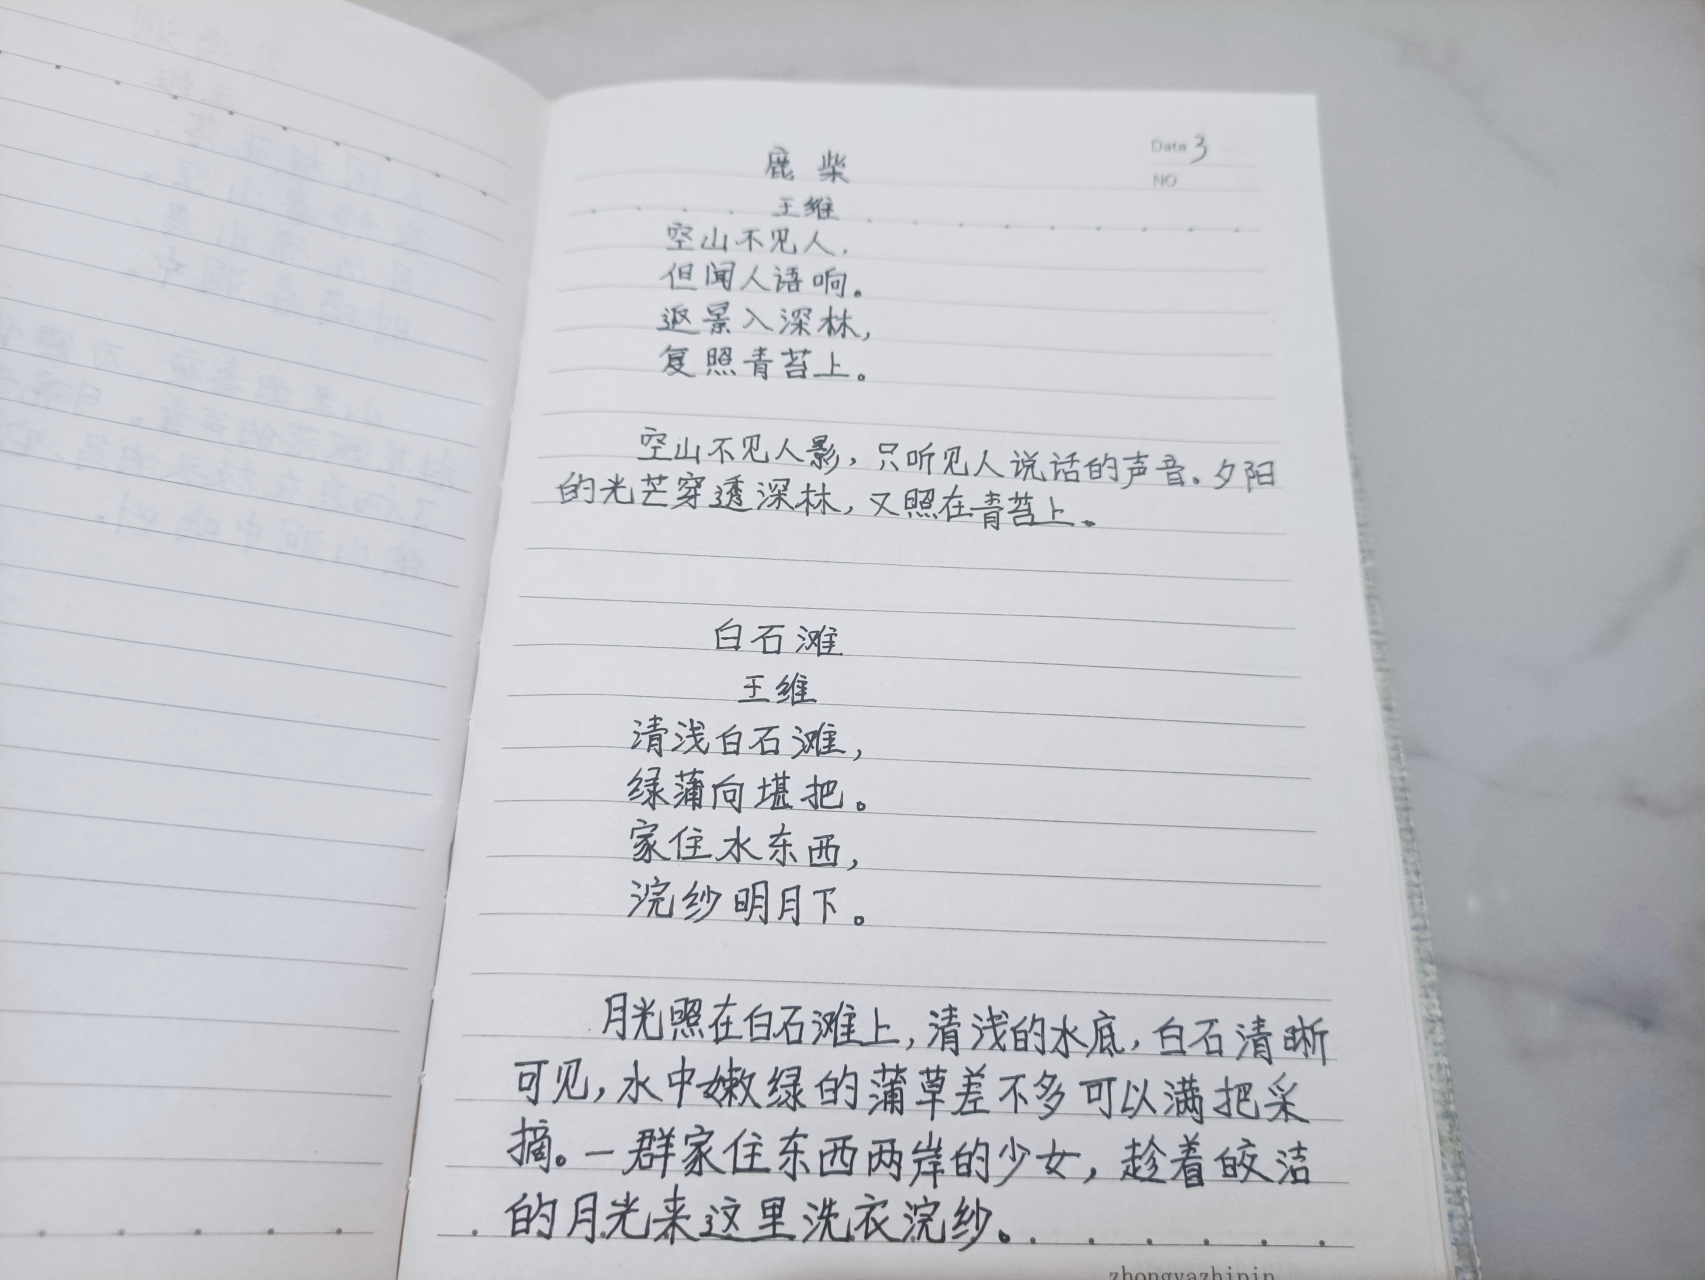 Date 3
NO
鹿柴
王维
空山不见人,
但闻人语响。
返景入深林,
复照青苔上。
空山不见人影,只听见人说话的声音。夕阳
的光芒穿透深林,又照在青苔上。
白石滩
王维
清浅白石滩,
绿蒲向堪把。
家住水东西,
浣纱明月下。
月光照在白石滩上,清浅的水底,白石清晰
可见,水中嫩绿的蒲草差不多可以满把采
摘。一群家住东西两岸的少女,趁着皎洁
的月光来这里洗衣浣纱。
zhongyazhipin